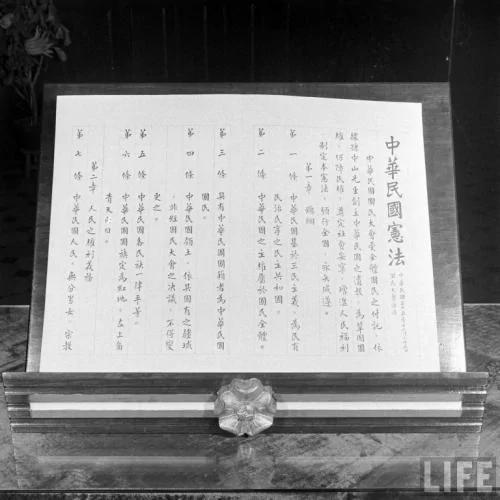 中華民國憲法
中華民國
國民大會
中華民國國民大會受全體國民之付託，依
據孫中山先生創立中華民國之遺教，為鞏固國
權，保障民權，奠定社會安寧，增進人民福利
制定本憲法，頒行全國，永矢咸遵。
第一章　總綱
第一條　中華民國基於三民主義，為民有
民治民享之民主共和國。
第二條　中華民國之主權屬於國民全體。
第三條　具有中華民國國籍者為中華民國
國民。
第四條　中華民國領土，依其固有之疆域
，非經國民大會之決議，不得變
更之。
第五條　中華民國各民族一律平等。
第六條　中華民國國旗定為紅地，左上角
青天白日。
第二章　人民之權利義務
第七條　中華民國人民，無分男女　宗教
LIFE